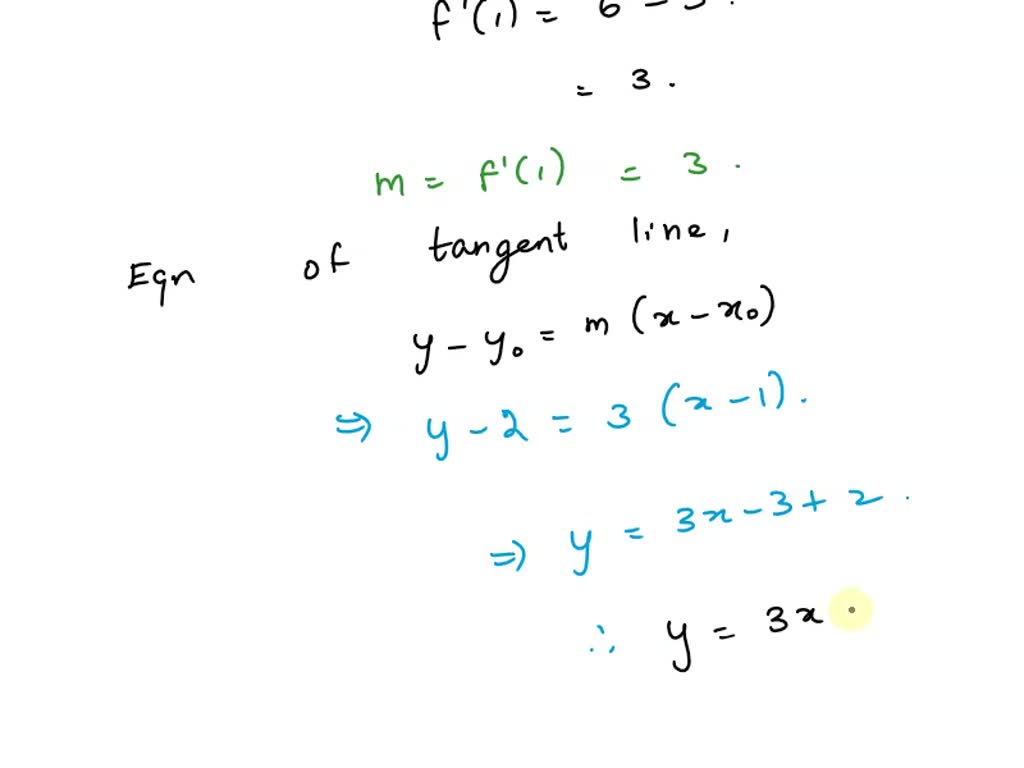 f'(1) = 6 - 3.
= 3.
m = f'(1) = 3.
Eqn of tangent line,
y - y₀ = m (x - x₀)
⇒ y - 2 = 3 (x - 1).
⇒ y = 3x - 3 + 2.
∴ y = 3x